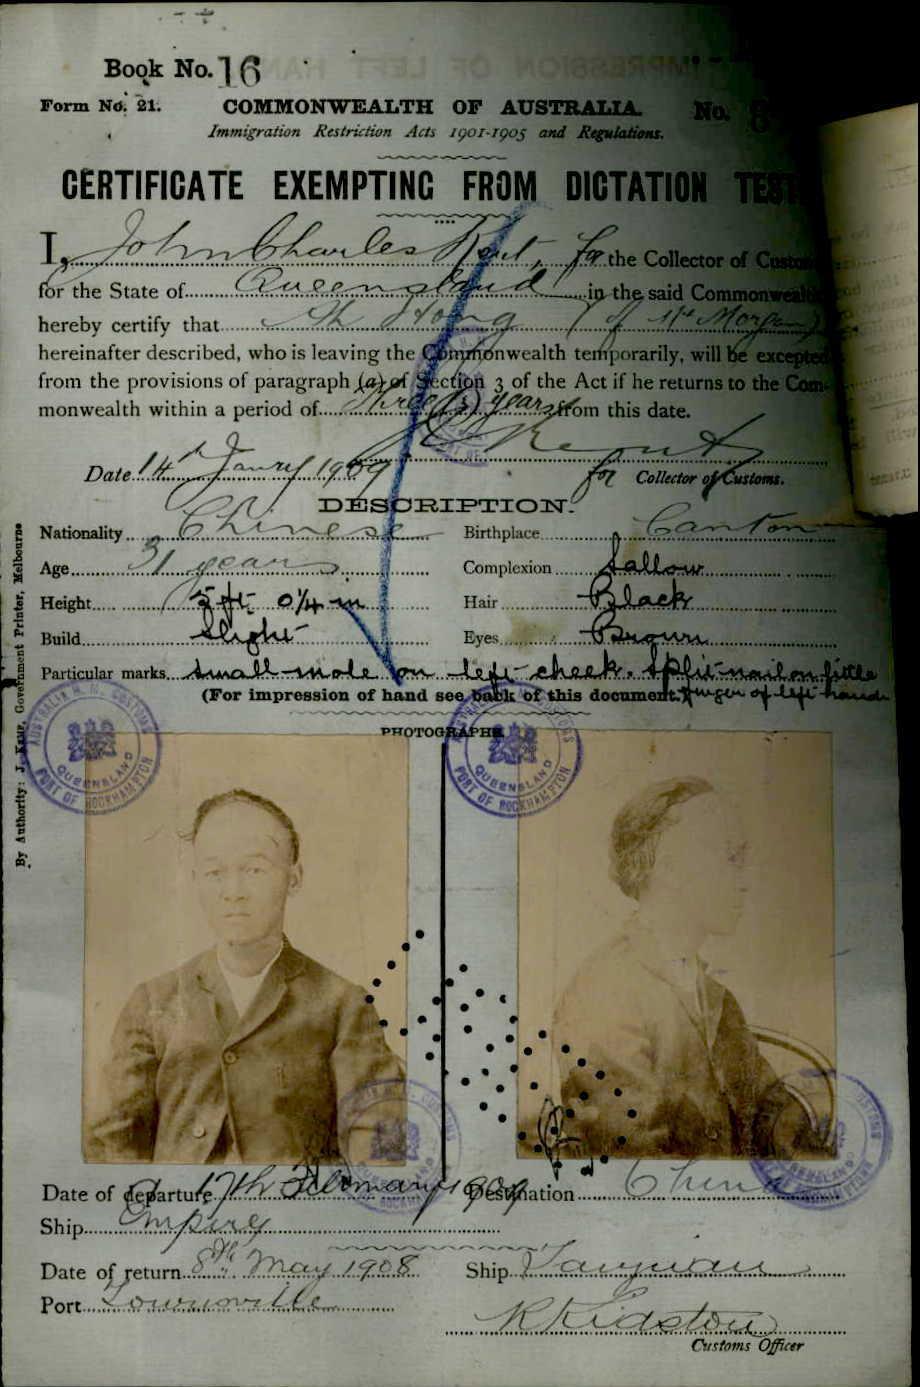 Book No. 16
Form No. 21. COMMONWEALTH OF AUSTRALIA. No. 8
Immigration Restriction Acts 1901-1905 and Regulations.
CERTIFICATE EXEMPTING FROM DICTATION TEST
I, John Charles Kent, for the Collector of Customs
for the State of Queensland in the said Commonwealth
hereby certify that Ah Hong (of Mt Morgan)
hereinafter described, who is leaving the Commonwealth temporarily, will be excepted
from the provisions of paragraph (a) of Section 3 of the Act if he returns to the Com-
monwealth within a period of three (3) years from this date.
Kent
Date 14th Janry 1909 for Collector of Customs.
DESCRIPTION.
Nationality Chinese Birthplace Canton
Age 31 years Complexion Sallow
Height 5 ft 0 1/4 in Hair Black
Build Slight Eyes Brown
Particular marks small mole on left cheek. Split nail on little
(For impression of hand see back of this document.) finger of left hand
PHOTOGRAPHS
AUSTRALIA H. M. CUSTOMS QUEENSLAND PORT OF ROCKHAMPTON
Date of departure 17th February 1909 Destination China
Ship Empire
Date of return 8th May 1908 Ship Taiyuan
Port Townsville
R Kidston
Customs Officer
By Authority: J. Kemp, Government Printer, Melbourne